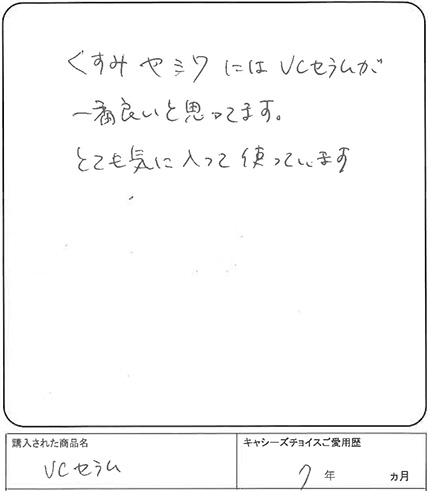 くすみやシワにはVCセラムが
一番良いと思ってます。
とても気に入って使っています
購入された商品名
キャシーズチョイスご愛用歴
VCセラム
7年 ヵ月